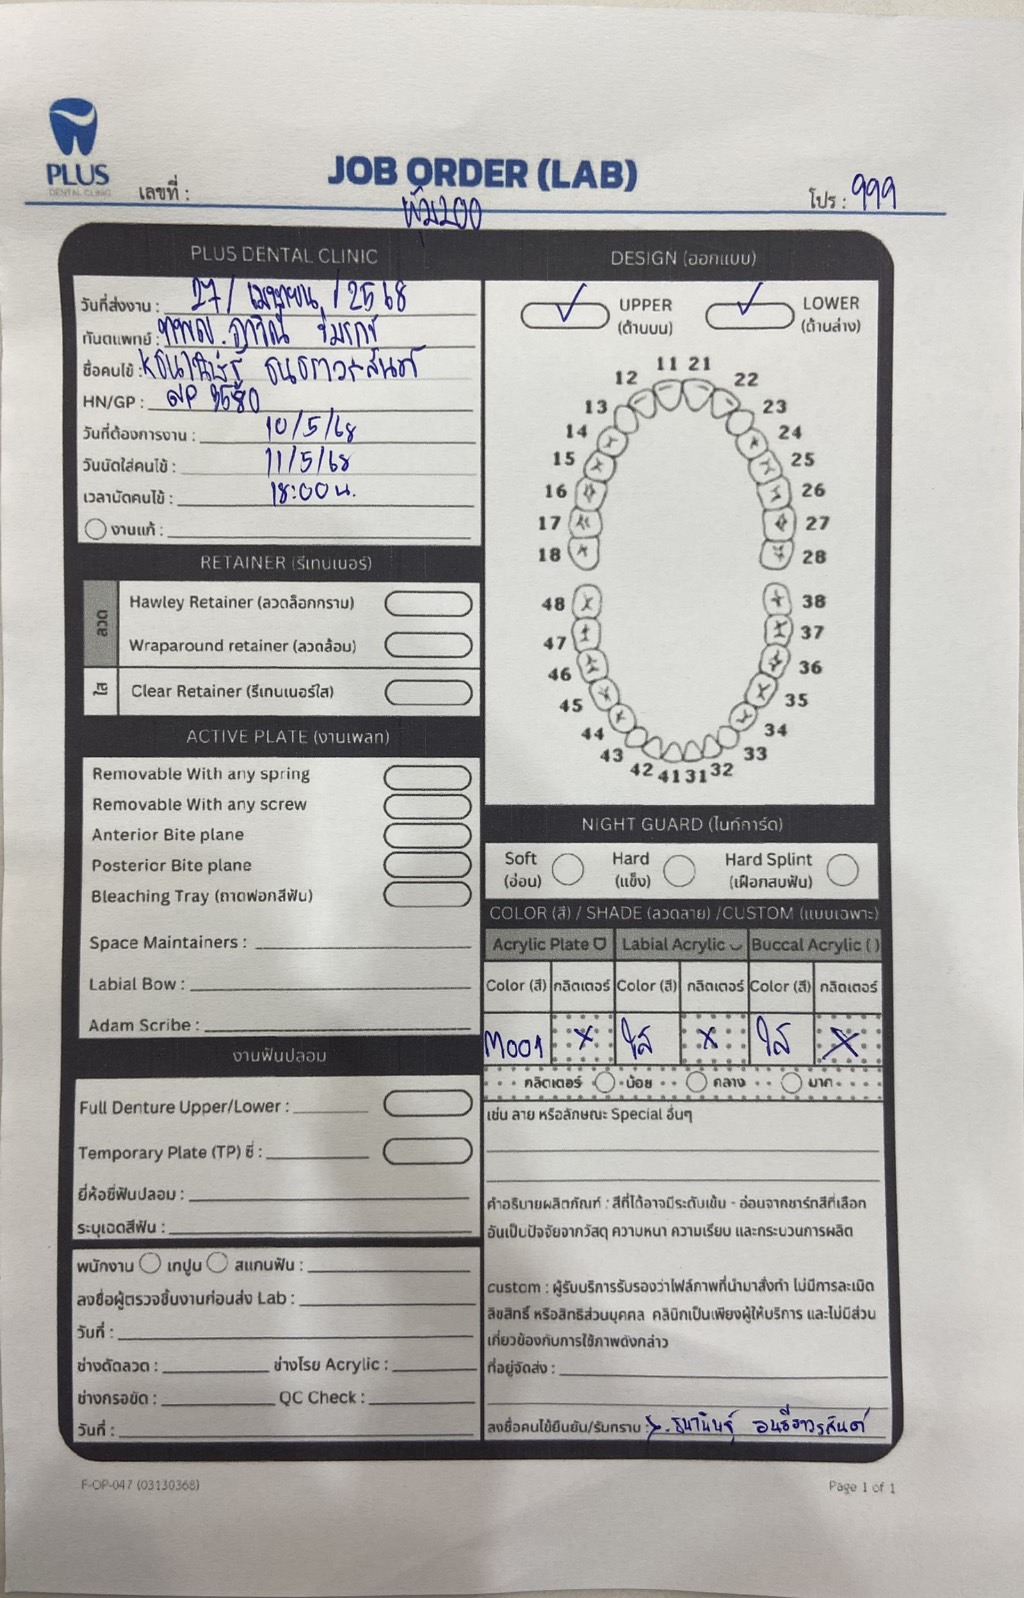 PLUS
DENTAL CLINIC
JOB ORDER (LAB)
เลขที่ :
โปร : 999
พิมพ์200
PLUS DENTAL CLINIC
วันที่ส่งงาน : 27/ เมษายน /2568
ทันตแพทย์ : ทพญ.
ชื่อคนไข้ :
HN/GP : 3580
วันที่ต้องการงาน : 10/5/68
วันนัดใส่คนไข้ : 11/5/68
เวลานัดคนไข้ : 18:00น.
งานแก้ :
RETAINER (รีเทนเนอร์)
ลวด
Hawley Retainer (ลวดล็อกกราม)
Wraparound retainer (ลวดล้อม)
ใส
Clear Retainer (รีเทนเนอร์ใส)
ACTIVE PLATE (งานเพลท)
Removable With any spring
Removable With any screw
Anterior Bite plane
Posterior Bite plane
Bleaching Tray (ถาดฟอกสีฟัน)
Space Maintainers :
Labial Bow :
Adam Scribe :
งานฟันปลอม
Full Denture Upper/Lower :
Temporary Plate (TP) ซี่ :
ยี่ห้อซี่ฟันปลอม :
ระบุเฉดสีฟัน :
พนักงาน เทปูน สแกนฟัน :
ลงชื่อผู้ตรวจชิ้นงานก่อนส่ง Lab :
วันที่ :
ช่างดัดลวด : ช่างโรย Acrylic :
ช่างกรอขัด : QC Check :
วันที่ :
DESIGN (ออกแบบ)
UPPER
(ด้านบน)
LOWER
(ด้านล่าง)
11 21
12 22
13 23
14 24
15 25
16 26
17 27
18 28
48 38
47 37
46 36
45 35
44 34
43 33
42 41 31 32
NIGHT GUARD (ไนท์การ์ด)
Soft
(อ่อน)
Hard
(แข็ง)
Hard Splint
(เฝือกสบฟัน)
COLOR (สี) / SHADE (ลวดลาย) /CUSTOM (แบบเฉพาะ)
Acrylic Plate Labial Acrylic Buccal Acrylic ( )
Color (สี) กลิตเตอร์ Color (สี) กลิตเตอร์ Color (สี) กลิตเตอร์
M001 X ใส X ใส X
กลิตเตอร์ น้อย กลาง มาก
เช่น ลาย หรือลักษณะ Special อื่นๆ
คำอธิบายผลิตภัณฑ์ : สีที่ได้อาจมีระดับเข้ม - อ่อนจากชาร์ทสีที่เลือก
อันเป็นปัจจัยจากวัสดุ ความหนา ความเรียบ และกระบวนการผลิต
custom : ผู้รับบริการรับรองว่าไฟล์ภาพที่นำมาสั่งทำ ไม่มีการละเมิด
ลิขสิทธิ์ หรือสิทธิส่วนบุคคล คลินิกเป็นเพียงผู้ให้บริการ และไม่มีส่วน
เกี่ยวข้องกับการใช้ภาพดังกล่าว
ที่อยู่จัดส่ง :
ลงชื่อคนไข้ยืนยัน/รับทราบ :
F-OP-047 (03130368)
Page 1 of 1